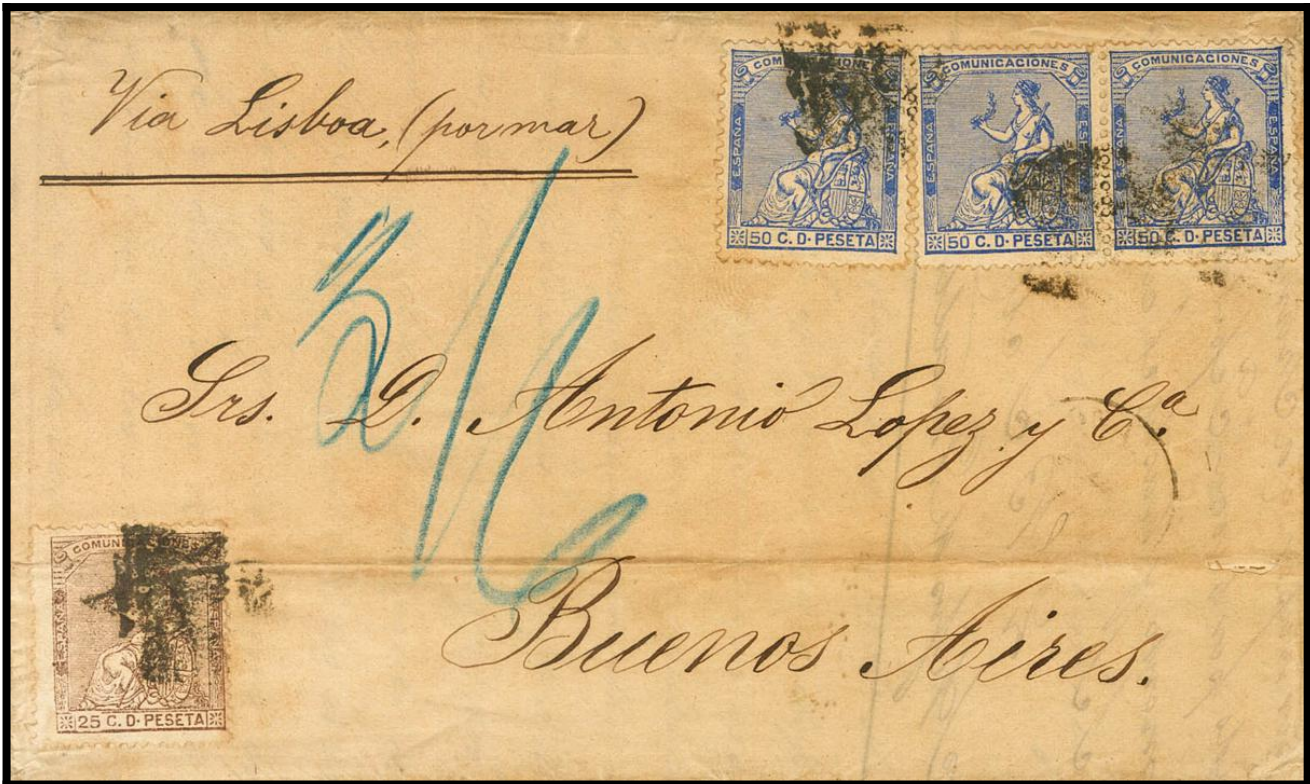 Via Lisboa, (por mar)
COMUNICACIONES
ESPAÑA
ESPAÑA
50 C. D. PESETA
COMUNICACIONES
ESPAÑA
ESPAÑA
50 C. D. PESETA
COMUNICACIONES
ESPAÑA
ESPAÑA
50 C. D. PESETA
Srs. D. Antonio Lopez y C.ª
Buenos Aires.
COMUNICACIONES
ESPAÑA
ESPAÑA
25 C. D. PESETA